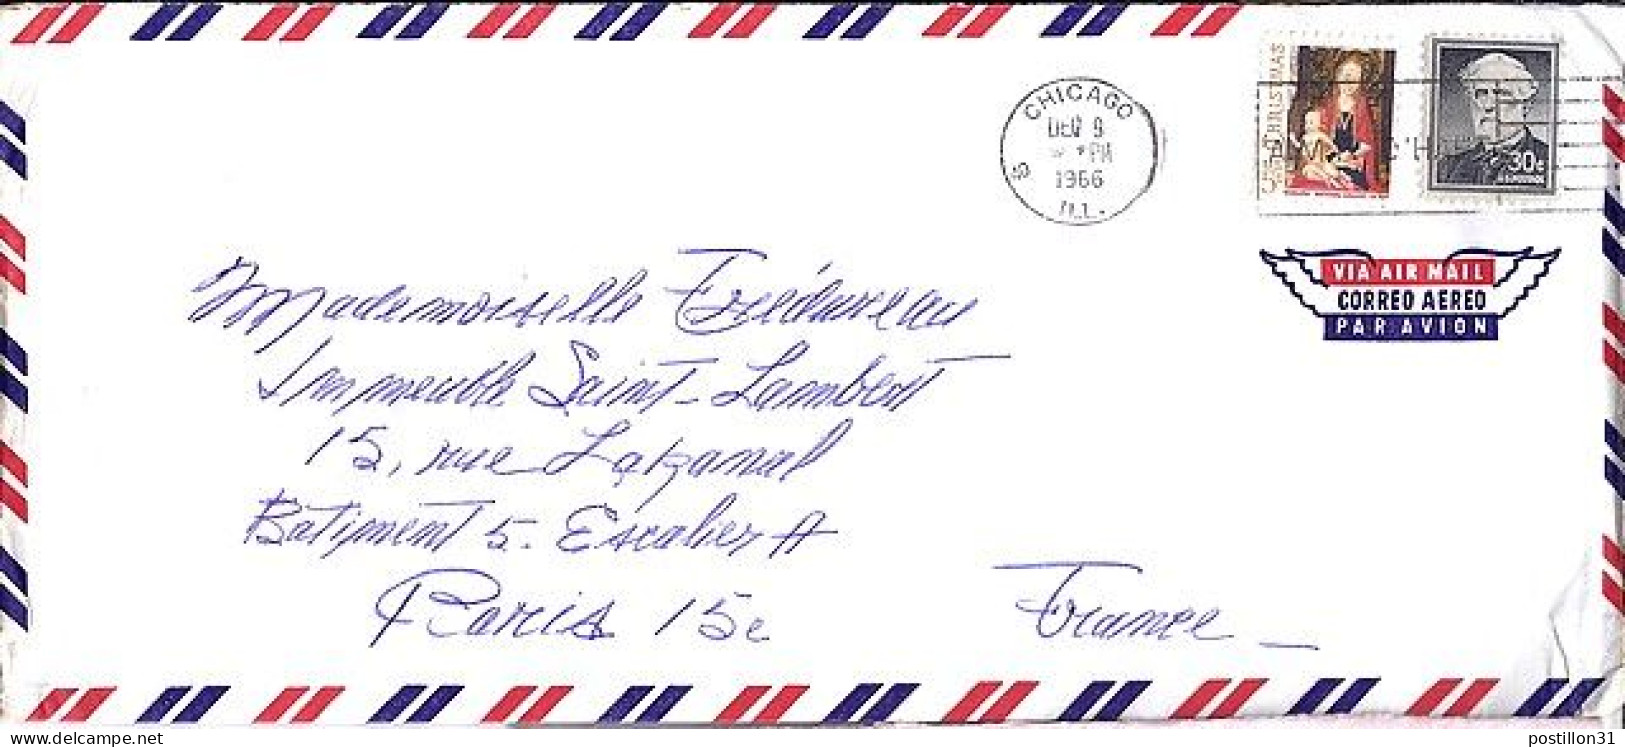 CHICAGO
DEC 9
PM
1966
ILL.
CHRISTMAS
30¢
VIA AIR MAIL
CORREO AEREO
PAR AVION
Mademoiselle Frédureau
Immeuble Saint-Lambert
15, rue Lakanal
Bâtiment 5. Escalier A
Paris 15e France
delcampe.net
postillon31